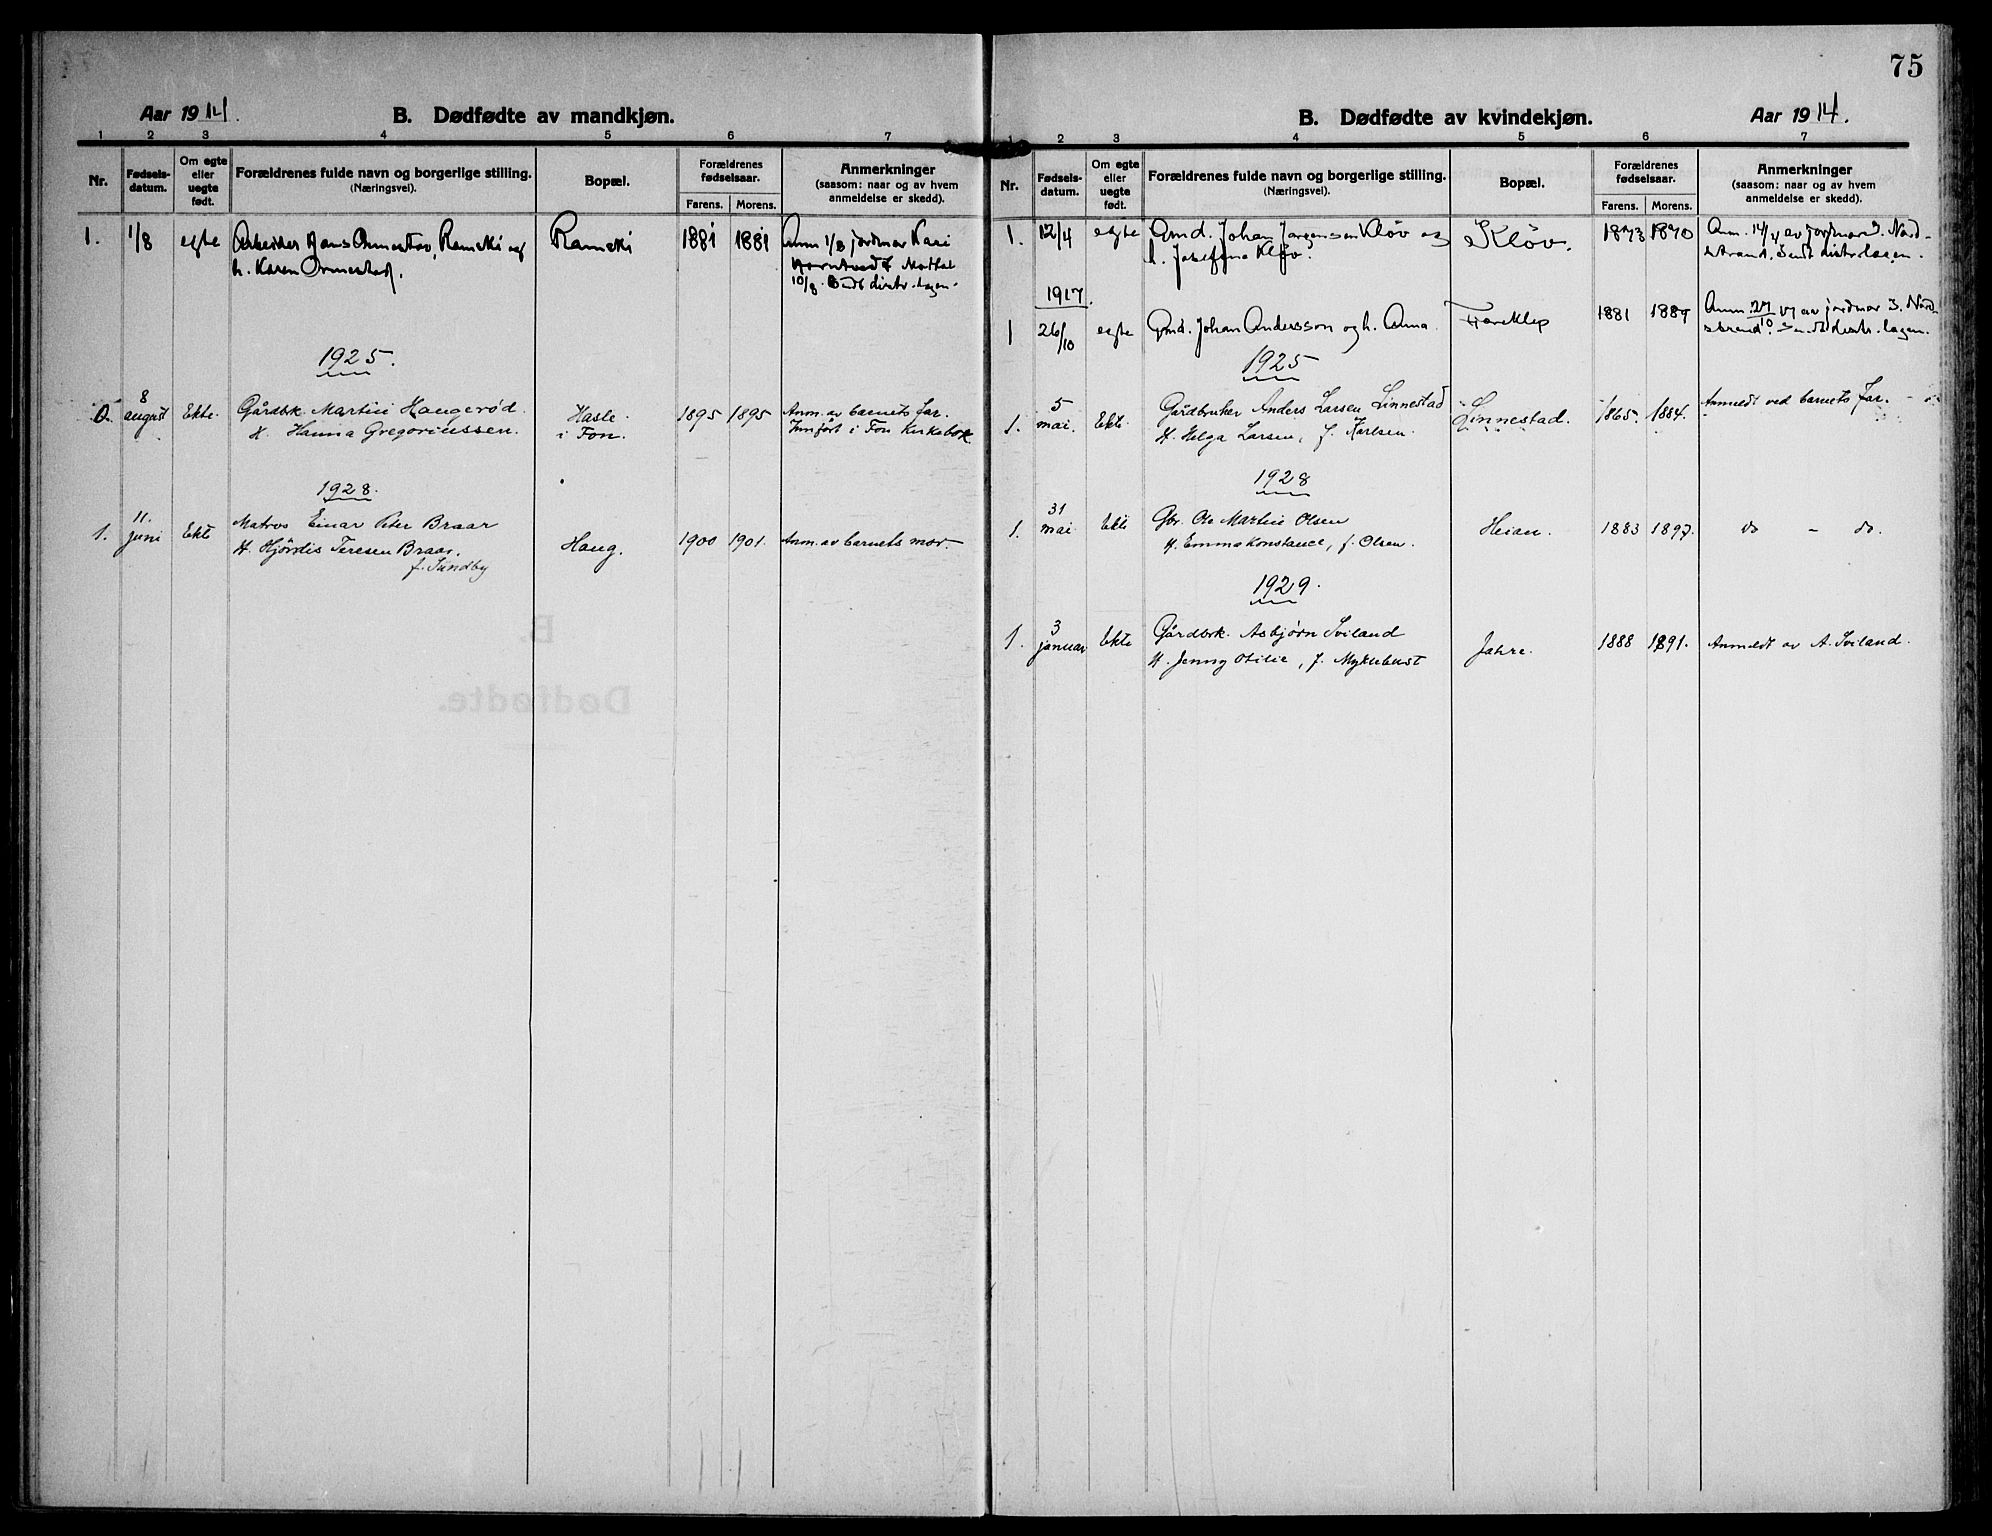 75
Aar 1914.
B. Dødfødte av mandkjøn.
1 2 3 4 5 6 7
Nr.
Fødsels-
datum.
Om egte
eller
uegte
født.
Forældrenes fulde navn og borgerlige stilling.
(Næringsvei).
Bopæl.
Forældrenes
fødselsaar.
Farens. Morens.
Anmerkninger
(saasom: naar og av hvem
anmeldelse er skedd).
1. 1/8 egte Arbeider Hans Ormestad, Ramski og Ramski 1881 1881 Anm 1/8 jordmor Kari
h. Karen Ormestad.
10/8 Sendt distr. lægen.
1925.
0. 8 august Ekte. Gårdbk. Martin Haugerød Hasle 1895 1895 Anm. av barnets far.
H. Hanna Gregoriussen. i Fon. Innført i Fon Kirkebok
1928.
1. 11. juni Ekte Matros Einar Peter Braar Haug. 1900 1901. Anm. av barnets mor.
H. Hjørdis Teresen Braar.
f. Sundby
B. Dødfødte av kvindekjøn.
Aar 1914.
1 2 3 4 5 6 7
Nr.
Fødsels-
datum.
Om egte
eller
uegte
født.
Forældrenes fulde navn og borgerlige stilling.
(Næringsvei).
Bopæl.
Forældrenes
fødselsaar.
Farens. Morens.
Anmerkninger
(saasom: naar og av hvem
anmeldelse er skedd).
1. 12/4 egte Gmd. Johan Jørgensen Kløv og Kløv. 1873 1870 Anm. 14/4 av jordmor J. Nord-
h. Josefine Kløv. strand. Sendt distr. lægen.
1917.
1 26/10 egte Gmd. Johan Andersson og h. Anna. 1881 1889 Anm. 27/10 17 av jordmor J. Nord-
strand. Sendt distr. lægen.
1925
1. 5 mai. Ekte. Gårdbruker Anders Larsen Linnestad Linnestad. 1865. 1884. Anmeldt ved barnets far.
H. Helga Larsen, f. Karlsen.
1928
1. 31 mai Ekte Gbr. Ole Martin Olsen Heian. 1883 1897. do - do.
H. Emma Konstance, f. Olsen.
1929.
1. 3 januar Ekte Gårdbrk. Asbjørn Sviland Jahre. 1888 1891. Anmeldt av A. Sviland.
H. Jenny Otilie, f. Myklebust